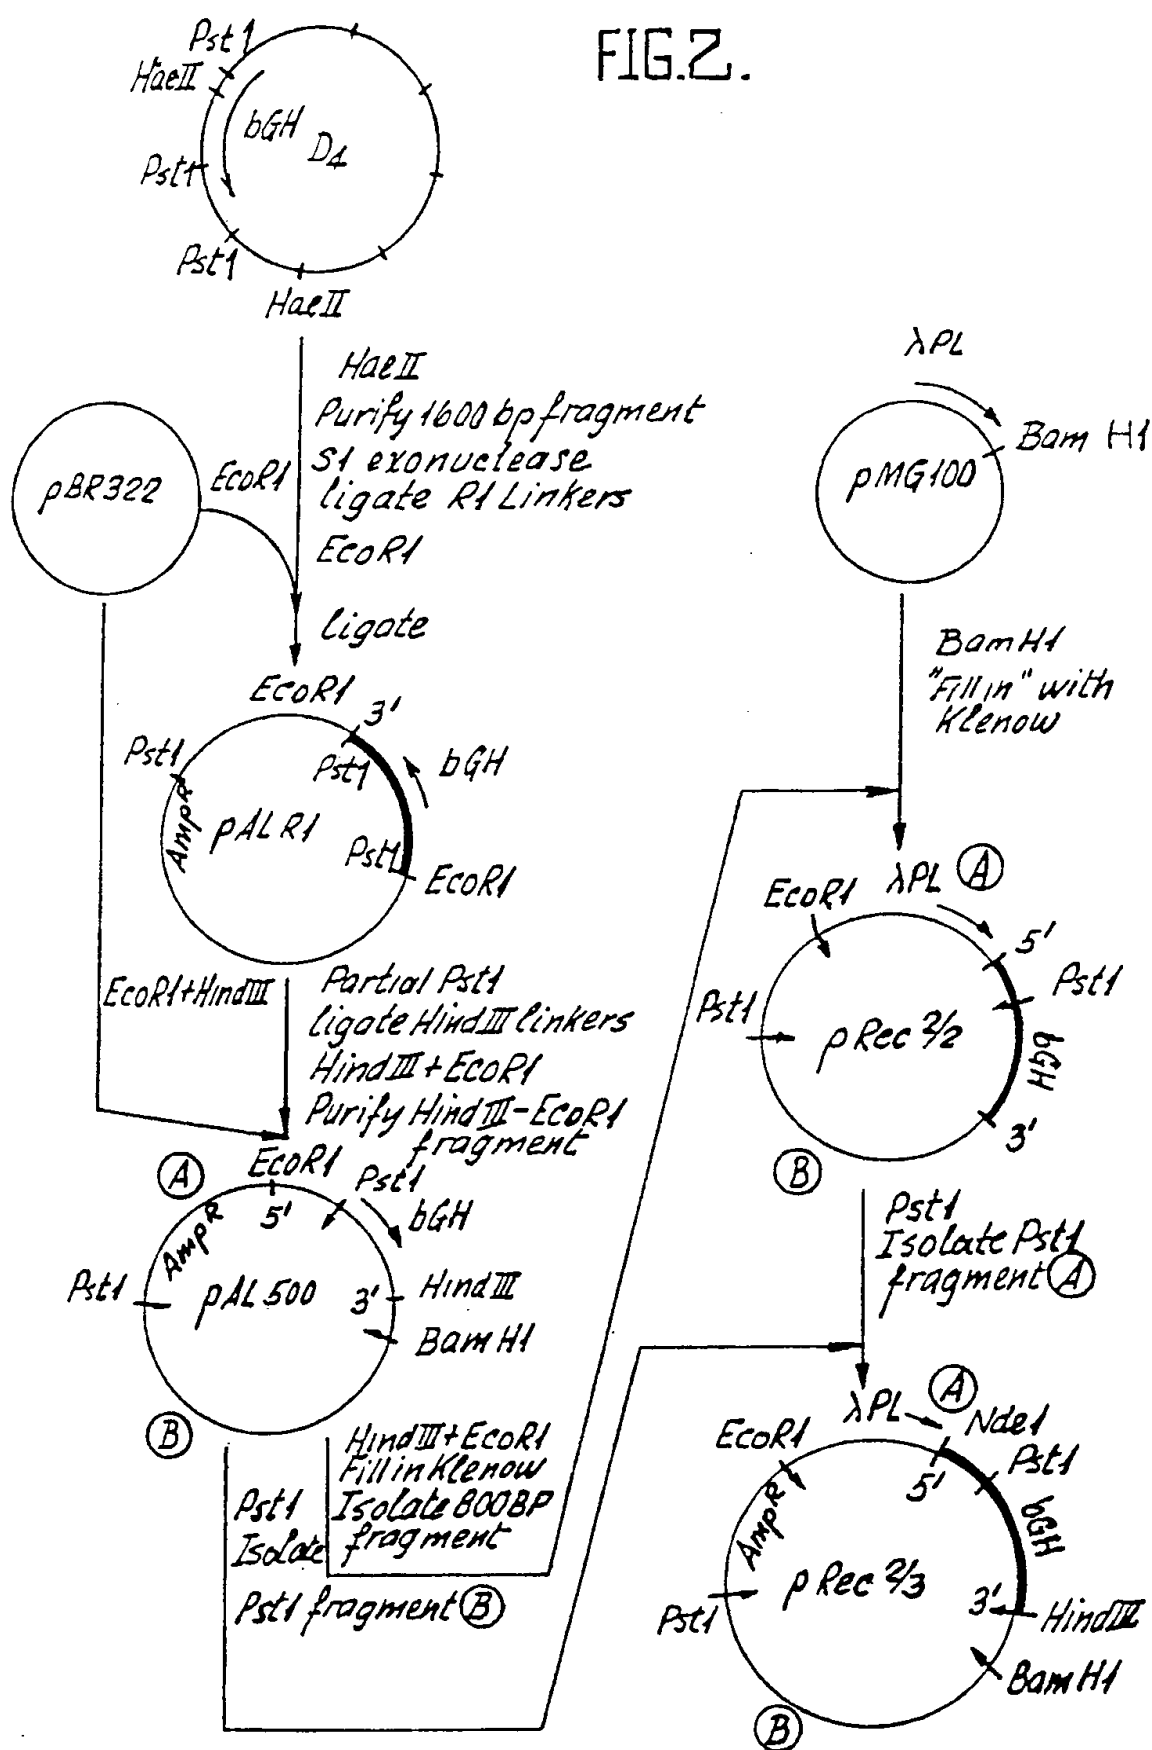 FIG.2.
Pst1
HaeII
bGH
D4
Pst1
Pst1
HaeII
HaeII
Purify 1600 bp fragment
S1 exonuclease
ligate R1 Linkers
EcoR1
ligate
pBR322
EcoR1
λPL
Bam H1
pMG100
BamH1
"Fill in" with
Klenow
EcoR1
3'
Pst1
Pst1
bGH
AmpR
pALR1
Pst1
EcoR1
EcoR1+HindIII
Partial Pst1
ligate HindIII linkers
HindIII+EcoR1
Purify HindIII-EcoR1
fragment
λPL
A
EcoR1
5'
Pst1
Pst1
pRec 2/2
bGH
3'
B
A
EcoR1
Pst1
5'
bGH
AmpR
Pst1
pAL500
3'
HindIII
BamH1
B
Pst1
Isolate Pst1
fragment A
HindIII+EcoR1
Fill in Klenow
Isolate 800BP
fragment
Pst1
Isolate
Pst1 fragment B
λPL
A
Nde1
EcoR1
5'
Pst1
AmpR
bGH
pRec 2/3
Pst1
3'
HindIII
BamH1
B